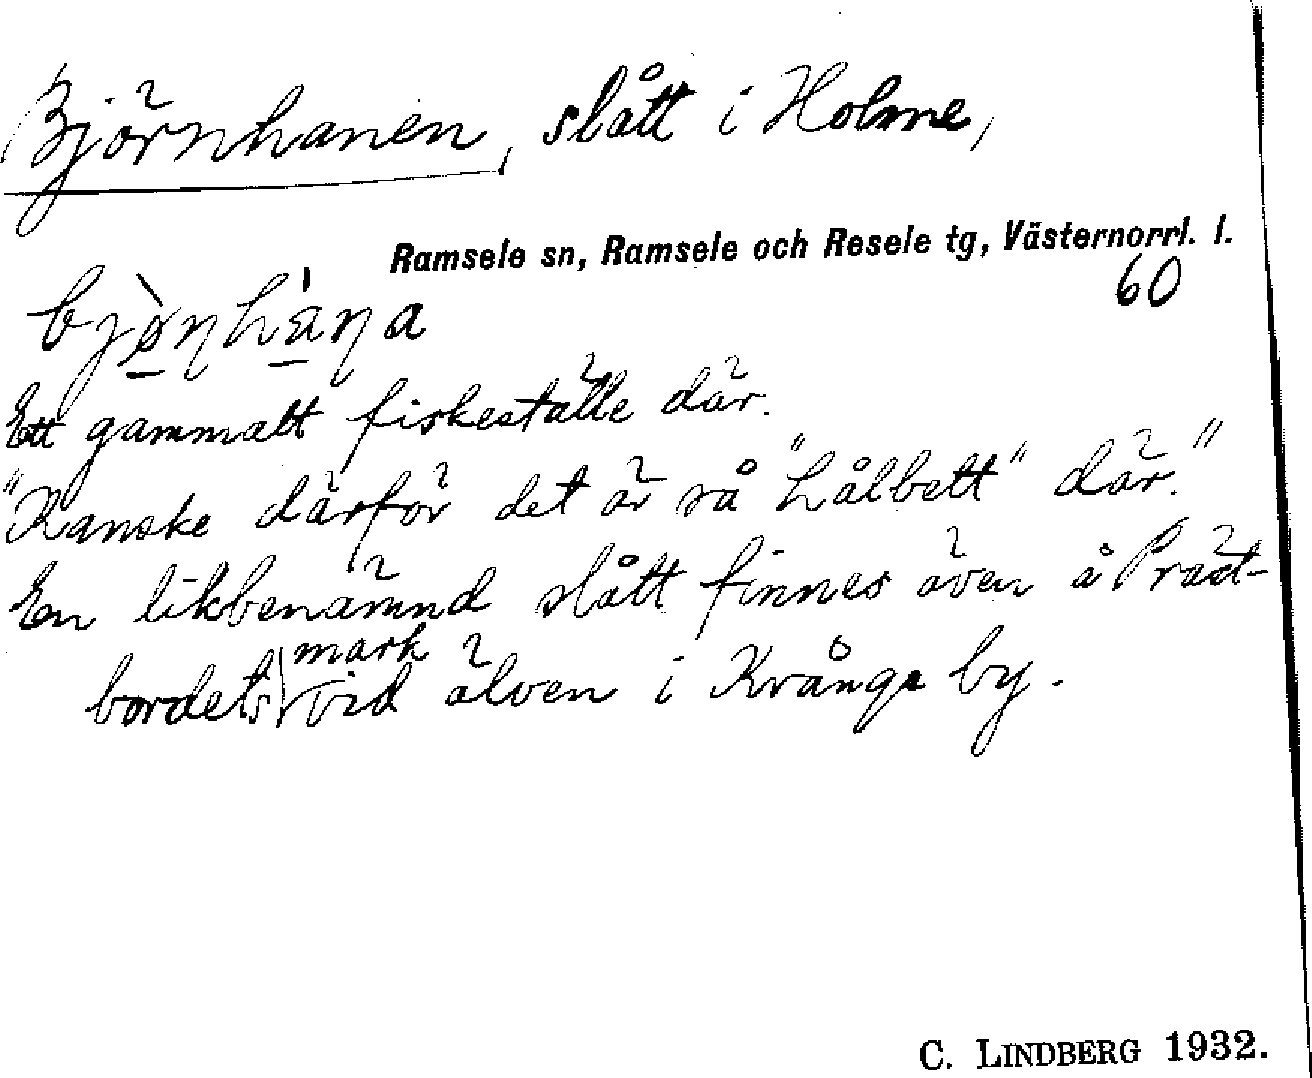 Björnhanen, slått i Holme,
Ramsele sn, Ramsele och Resele tg, Västernorrl. l.
60
bjö̀ṇhàṇa
Ett gammalt fiskeställe där.
"Kanske därför det är så "hålbett" där."
En likbenämnd slått finnes även å Präst-
bordets mark vid älven i Krånge by.
C. LINDBERG 1932.